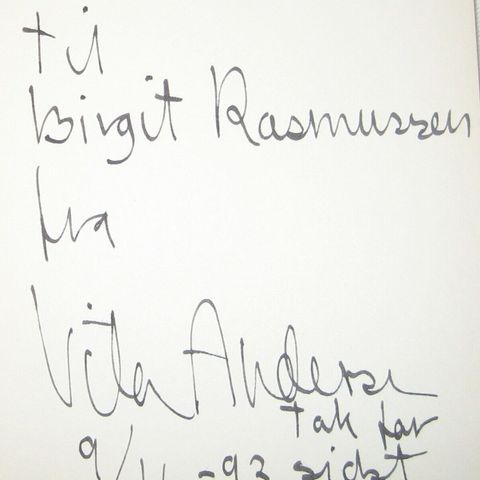 til
Birgit Rasmussen
fra
Vita Andersen
tak for
9/11 -93 sidst